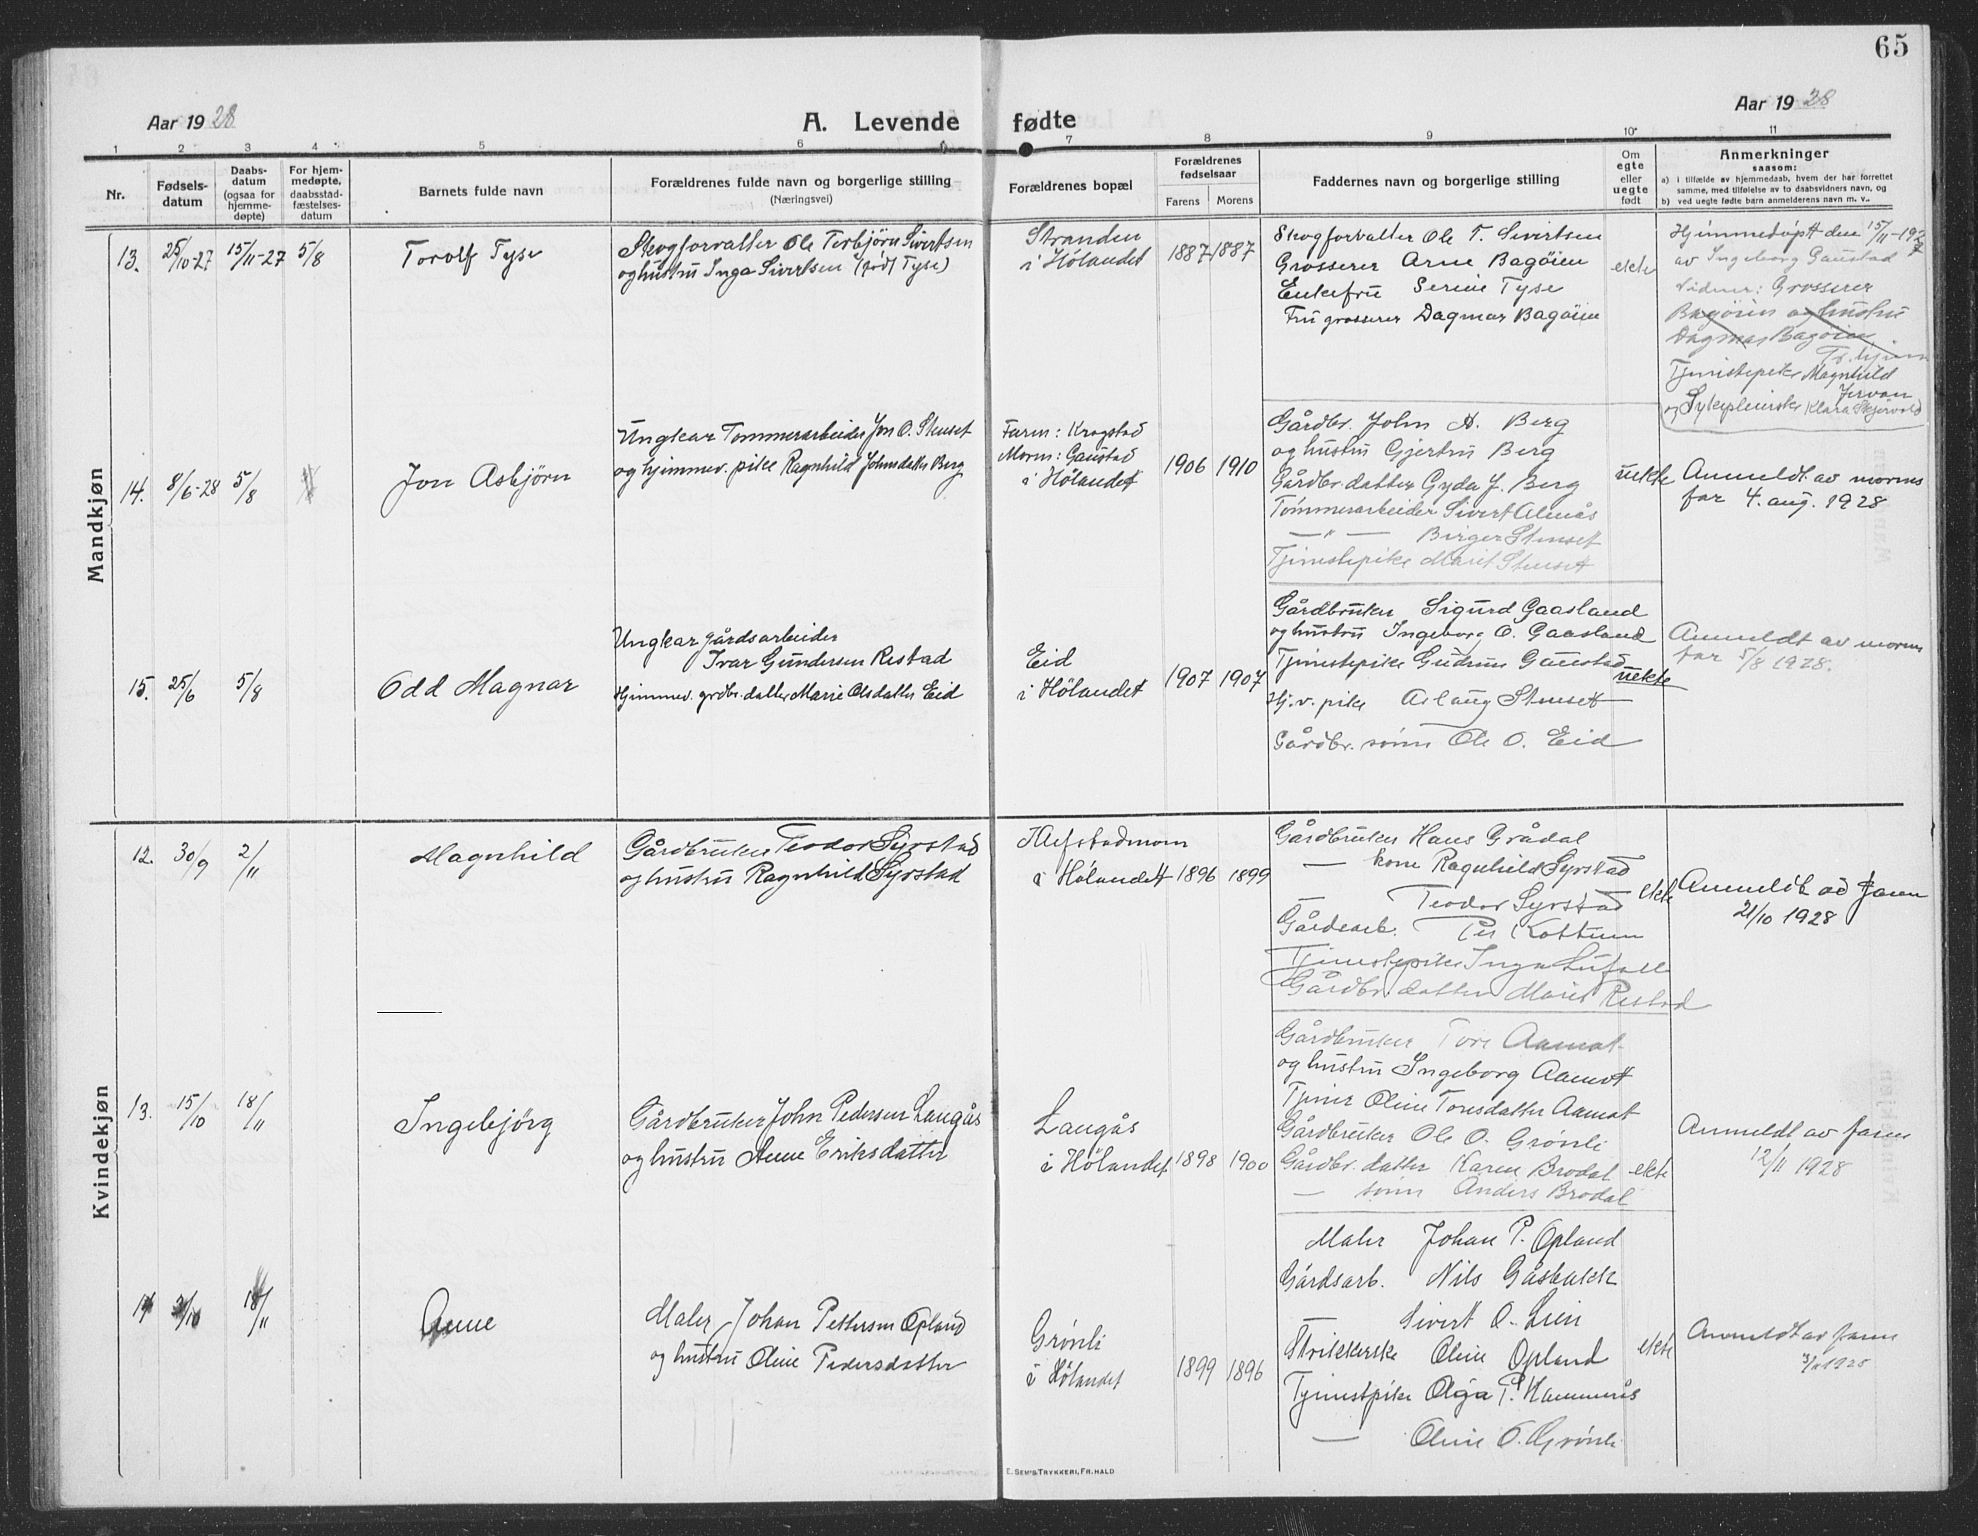 65
Aar 1928
A. Levende fødte
Aar 1928
1 2 3 4 5 6 7 8 9 10 11
Nr.
Fødselsdatum
Daabsdatum (ogsaa for hjemmedøpte)
For hjemmedøpte, daabsstadfæstelsesdatum
Barnets fulde navn
Forældrenes fulde navn og borgerlige stilling
(Næringsvei)
Forældrenes bopæl
Forældrenes fødselsaar
Farens
Morens
Faddernes navn og borgerlige stilling
Om egte eller uegte født
Anmerkninger
saasom:
a) i tilfælde av hjemmedaab, hvem der har forrettet samme, med tilføielse av to daabsvidners navn, og
b) ved uegte fødte barn anmelderens navn m. v..
Mandkjøn
13. 25/10-27 15/11-27 5/8
Torolf Tyse
Skogforvalter Ole Torbjørn Sivertsen
og hustru Inga Sivertsen (født Tyse)
Stranden
i Hølandet
1887 1887
Skogforvalter Ole T. Sivertsen
Grosserer Arne Bagøien
Enkefru Serine Tyse
Fru grosserer Dagmar Bagøien
ekte
Hjemmedøpt den 15/11-1927
av Ingeborg Gaustad
Vidner: Grosserer
Bagøien og hustru
Dagmar Bagøien
Tr.hjem
Tjenestepike Magnhild
Jervan
og Sykepleierske Klara Skjervold
14. 8/6-28 5/8
Jon Asbjörn
Ungkar Tømmerarbeider Jon O. Stenset
og hjemmev. pike Ragnhild Johnsdatter Berg
Faren: Krogstad
Moren: Gaustad
i Hølandet
1906 1910
Gårdbr. John A. Berg
og hustru Gjertru Berg
Gårdbr. datter Gyda J. Berg
Tømmerarbeider Sivert Almås
— " — Birger Stenset
Tjenestepike Marit Stenset
uekte
Anmeldt av morens
far 4. aug. 1928
15. 25/6 5/8
Odd Magnar
Ungkar gårdsarbeider
Ivar Gundersen Restad
Hjemmev. grdbr. datter Marie Olsdatter Eid
Eid
i Hølandet
1907 1907
Gårdbruker Sigurd Gaasland
og hustru Ingeborg O. Gaasland
Tjenestepike Gudrun Gaustad
Hj. v. pike Aslaug Stenset
Gårdbr. sønn Ole O. Eid
uekte
Anmeldt av morens
far 5/8 1928.
Kvindekjøn
12. 30/9 2/11
Magnhild
Gårdbruker Teodor Syrstad
og hustru Ragnhild Syrstad
Klefstadmoen
i Hølandet
1896 1899
Gårdbruker Hans Grådal
— kone Ragnhild Syrstad
— Teodor Syrstad
Gårdsarb. Per Kottum
Tjenestepike Inga
Gårdbr. datter Marit Restad
ekte
Anmeldt av faren
21/10 1928
13. 15/10 18/11
Ingebjörg
Gårdbruker John Pedersen Langås
og hustru Anne Eriksdatter
Langås
i Hølandet
1898 1900
Gårdbruker Tore Aamot
og hustru Ingeborg Aamot
Tjener Oline Toresdatter Aamot
Gårdbruker Ole O. Grønli
Gårdbr. datter Karen Brodal
— sønn Anders Brodal
ekte
Anmeldt av faren
12/11 1928
14 /10 18/11
Anne
Maler Johan Pettersen Opland
og hustru Oline Pedersdatter
Grønli
i Hølandet
1899 1896
Maler Johan P. Opland
Gårdsarb. Nils Gåsbakk
Sivert O. Lien
Strikkerske Oline Opland
Tjenestpike Olga P. Hammerås
— Oline O. Grønli
ekte
Anmeldt av faren
E. Sem's Trykkeri, Fr.hald